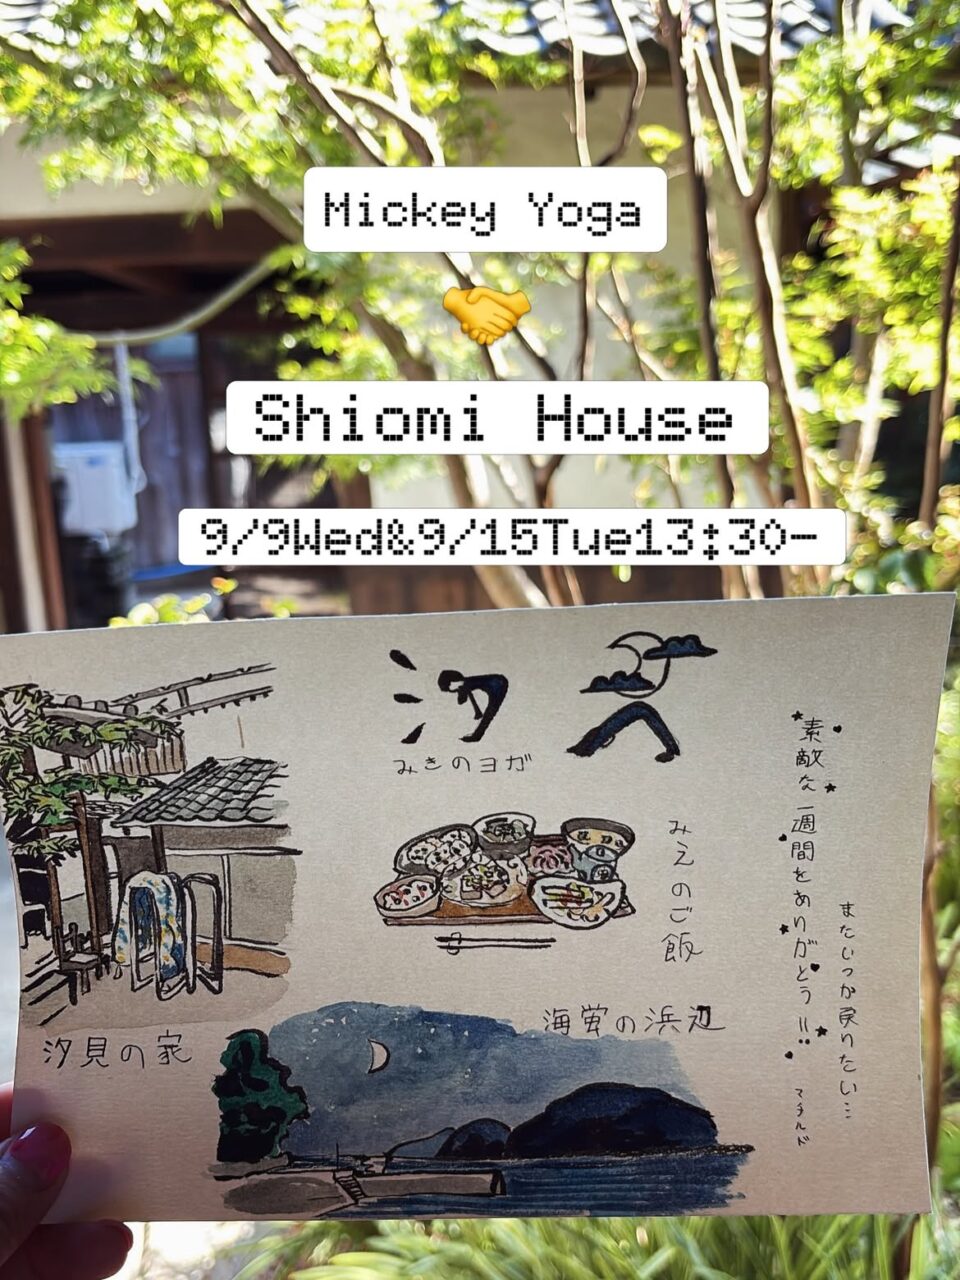 Mickey Yoga
Shiomi House
9/9Wed&9/15Tue13:30-
汐見
みきのヨガ
みえのご飯
素敵な一週間をありがとう!!
またいつか戻りたい…
マチルド
海蛍の浜辺
汐見の家